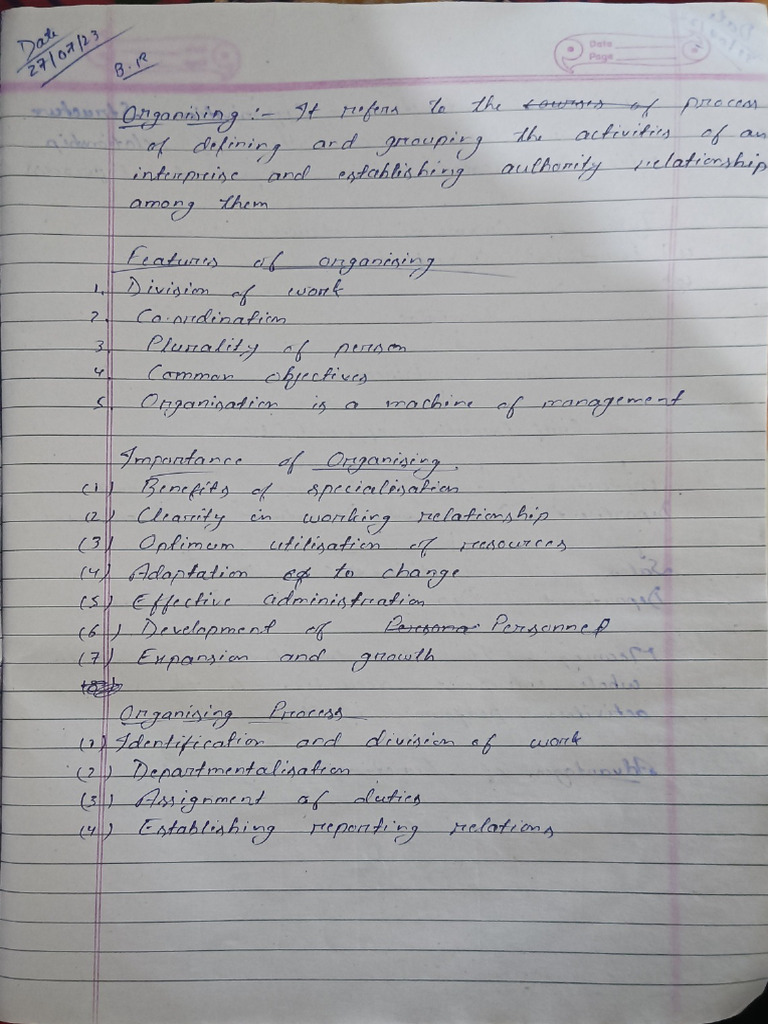 Date
27/07/23
B.R
Date
Page
Organising :- It refers to the courses of process
of defining and grouping the activities of an
interprise and establishing authority relationship
among them
Features of organising
1. Division of work
2. Co-ordination
3. Plurality of person
4. Common objectives
5. Organisation is a machine of management
Importance of Organising.
(1) Benefits of specialisation
(2) Clearity in working relationship
(3) Optimum utilisation of resources
(4) Adaptation to change
(5) Effective administration
(6) Development of Persona Personnel
(7) Expansion and growth
Organising Process
(1) Identification and division of work
(2) Departmentalisation
(3) Assignment of duties
(4) Establishing reporting relations